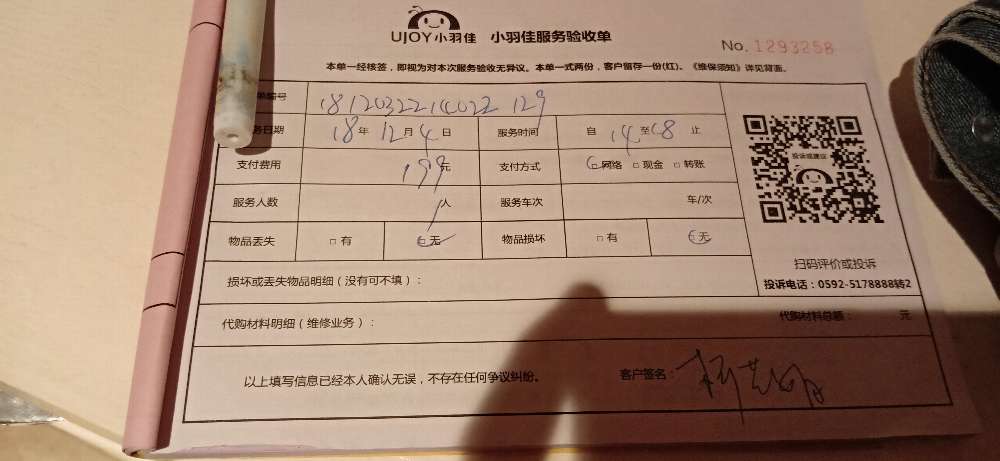 UJOY小羽佳 小羽佳服务验收单
No. 1293258
本单一经核签，即视为对本次服务验收无异议。本单一式两份，客户留存一份(红)。《维保须知》详见背面。
单编号 18120322141022 129
务日期 18年12月4日 服务时间 自14至18止
支付费用 199元 支付方式 □网络 □现金 □转账
服务人数 1人 服务车次 车/次
物品丢失 □有 □无 物品损坏 □有 □无
投诉或建议
扫码评价或投诉
投诉电话：0592-5178888转2
损坏或丢失物品明细（没有可不填）：
代购材料明细（维修业务）： 代购材料总额： 元
以上填写信息已经本人确认无误，不存在任何争议纠纷。 客户签名：